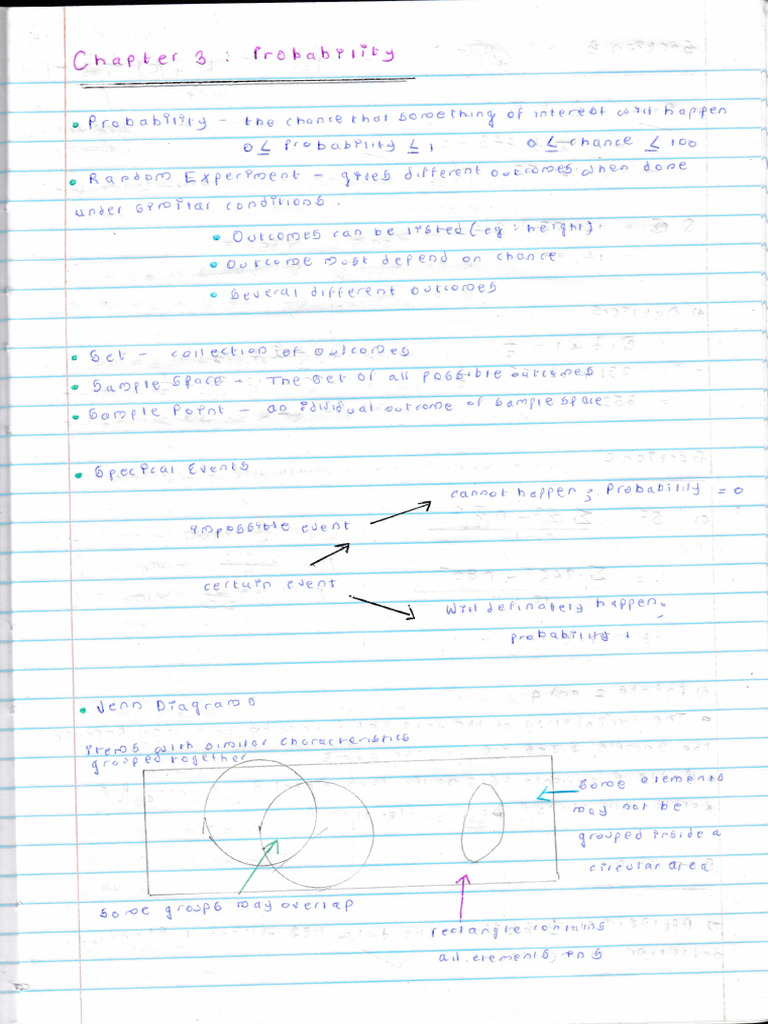 Chapter 3 : Probability
• Probability - the chance that something of interest will happen
0 ≤ Probability ≤ 1 0 ≤ chance ≤ 100
• Random Experiment - gives different outcomes when done
under similar conditions.
• Outcomes can be listed (eg: height)
• Outcome must depend on chance
• Several different outcomes
• Set - collection of outcomes
• Sample Space - The set of all possible outcomes
• Sample Point - an idividual outcome of sample space
• Specical Events
cannot happen ; Probability = 0
impossible event
certain event
Will definately happen,
probability 1
• Venn Diagrams
items with similar characteristics
grouped together
some elements
may not be
grouped inside a
circular area
some groups may overlap
rectangle contains
all elements